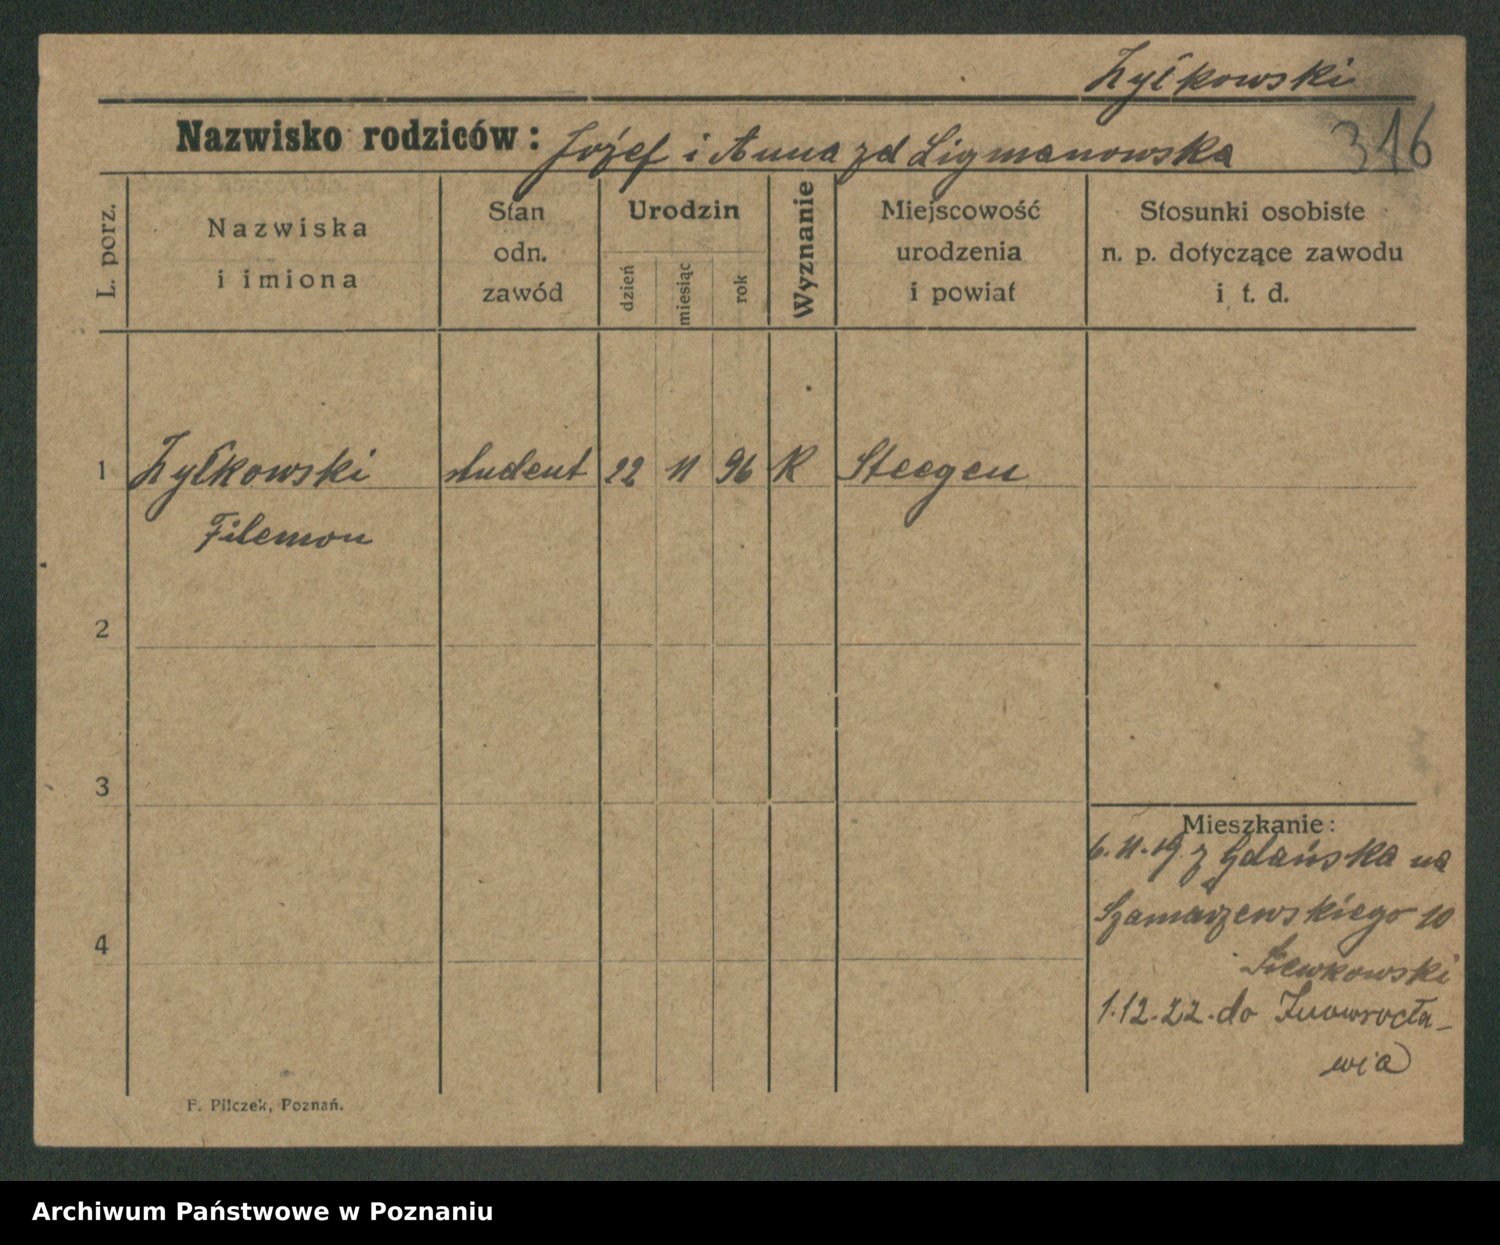 Zyłkowski
316
Nazwisko rodziców: Józef i Anna zd Ligmanowska
L. porz.
Nazwiska
i imiona
Stan
odn.
zawód
Urodzin
dzień
miesiąc
rok
Wyznanie
Miejscowość
urodzenia
i powiat
Stosunki osobiste
n. p. dotyczące zawodu
i t. d.
1 Zyłkowski student 22 11 96 K Steegen
Filemon
2
3
Mieszkanie:
6.11.19 z Gdańska na
Szamarzewskiego 10
4
1.12.22. do Inowrocła-
wia
F. Pilczek, Poznań.
Archiwum Państwowe w Poznaniu